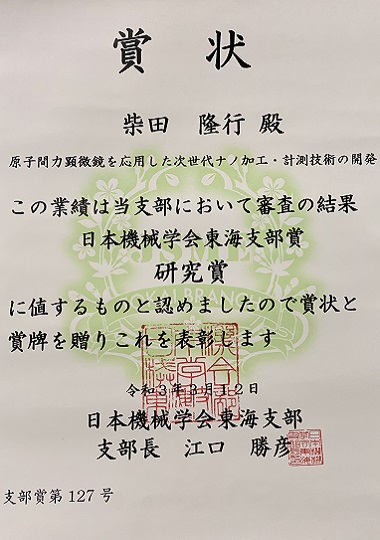 賞状
柴田 隆行 殿
原子間力顕微鏡を応用した次世代ナノ加工・計測技術の開発
この業績は当支部において審査の結果
日本機械学会東海支部賞
研究賞
に値するものと認めましたので賞状と
賞牌を贈りこれを表彰します
令和3年3月12日
日本機械学会東海支部
支部長 江口 勝彦
支部賞第127号